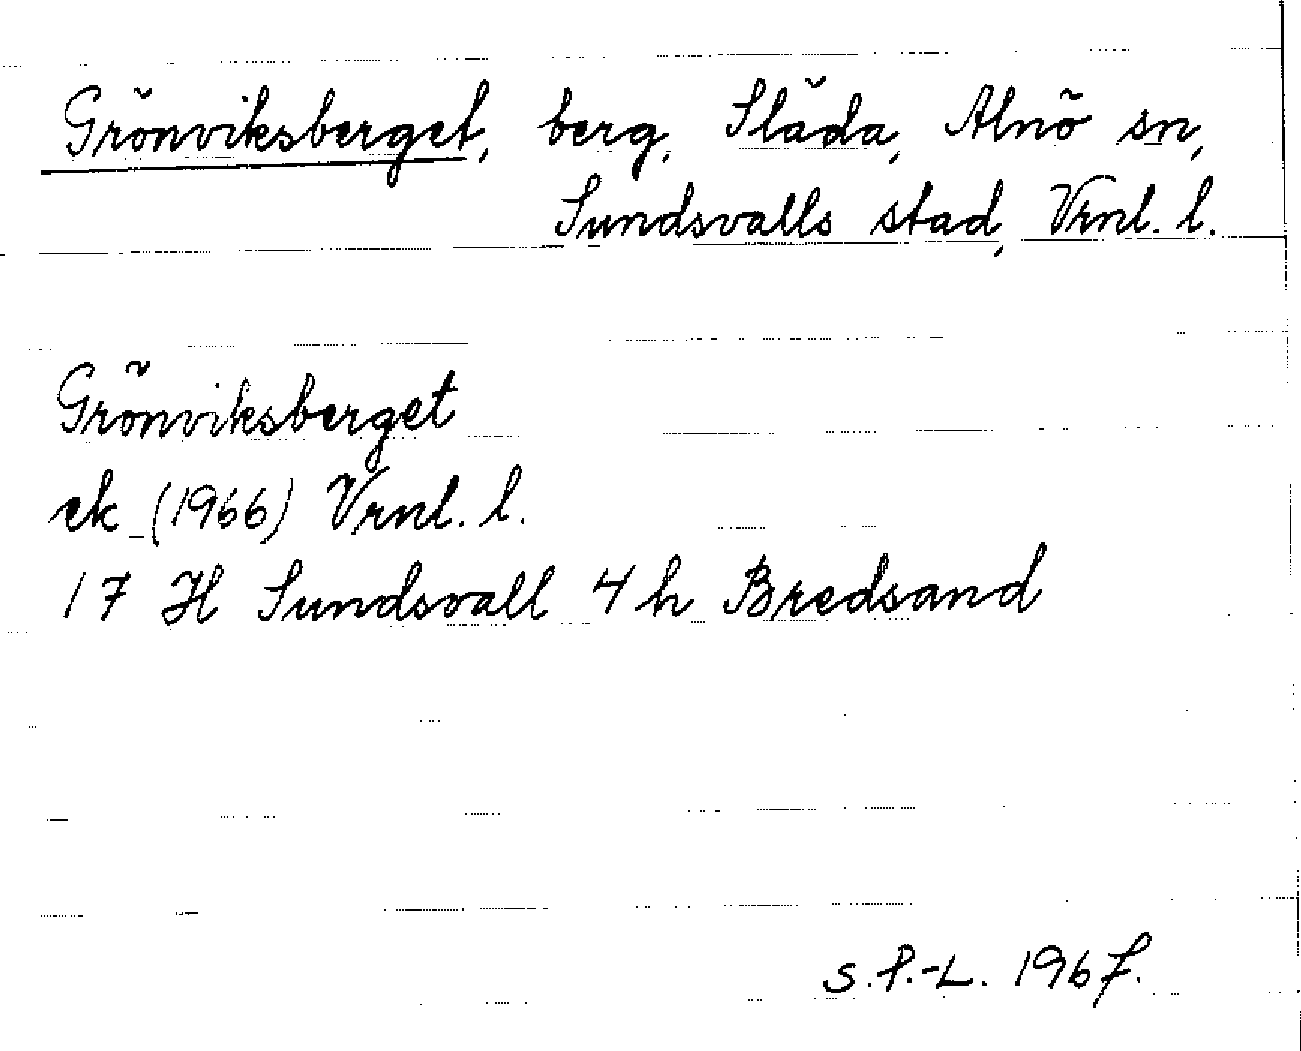 Grönviksberget, berg, Släda, Alnö sn,
Sundsvalls stad, Vrnl. l.
Grönviksberget
ek (1966) Vrnl. l.
17 H Sundsvall 4 h Bredsand
S.P.-L. 1967.